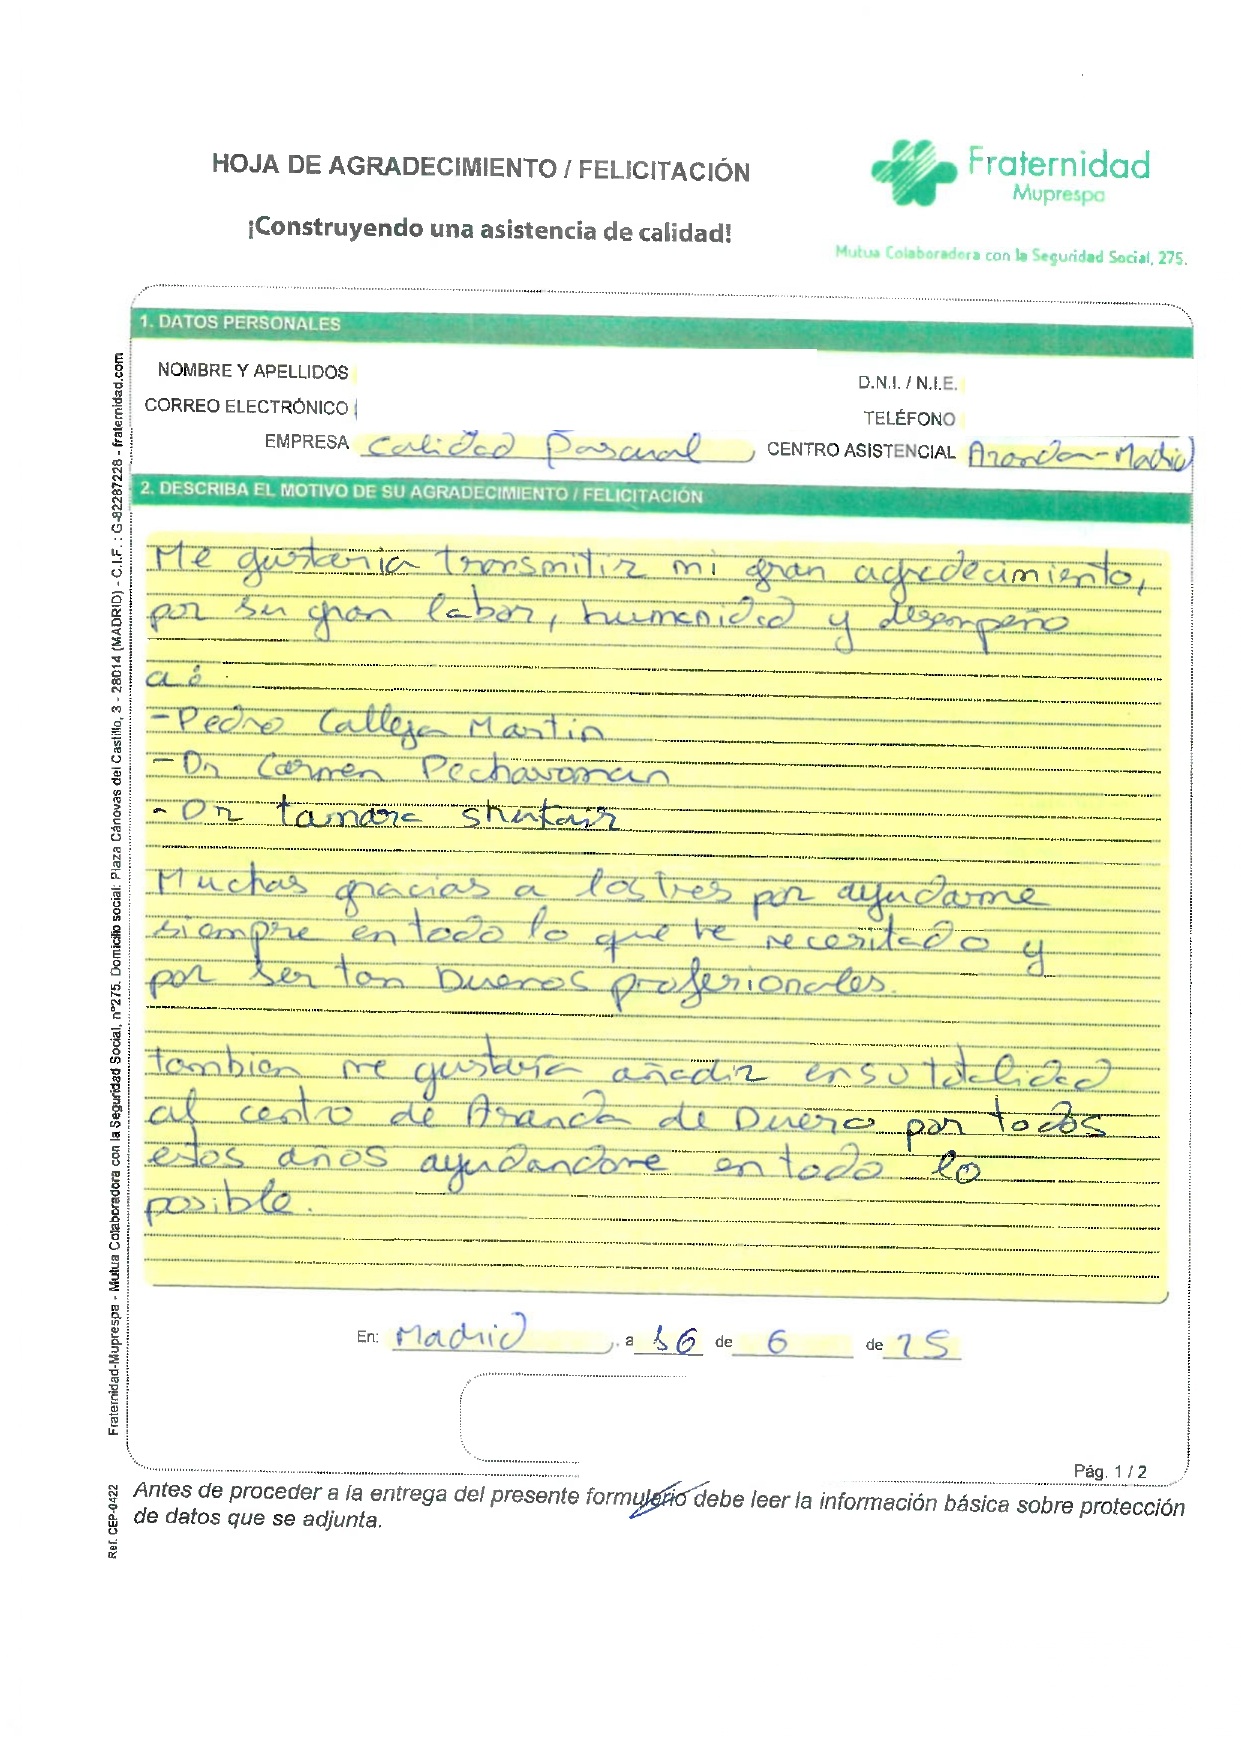 HOJA DE AGRADECIMIENTO / FELICITACIÓN
¡Construyendo una asistencia de calidad!
Fraternidad
Muprespa
Mutua Colaboradora con la Seguridad Social, 275.
1. DATOS PERSONALES
NOMBRE Y APELLIDOS
D.N.I. / N.I.E.
CORREO ELECTRÓNICO
TELÉFONO
EMPRESA Calidad Pascual
CENTRO ASISTENCIAL Aranda-Madrid
2. DESCRIBA EL MOTIVO DE SU AGRADECIMIENTO / FELICITACIÓN
Me gustaria transmitir mi gran agredecimiento,
por su gran labor, humanidad y desempeño
a :
-Pedro Calleja Martin
-Dr Carmen
- Dr tamara
Muchas gracias a los tres por ayudarme
siempre en todo lo que he necesitado y
por ser tan buenos profesionales.
tambien me gustaria añadir en su totalidad
al centro de Aranda de Duero por todos
estos años ayudandome en todo lo
posible.
En: Madrid, a 16 de 6 de 25
Pág. 1 / 2
Antes de proceder a la entrega del presente formulario debe leer la información básica sobre protección
de datos que se adjunta.
Fraternidad-Muprespa - Mutua Colaboradora con la Seguridad Social, nº275. Domicilio social: Plaza Cánovas del Castillo, 3 - 28014 (MADRID) - C.I.F. : G-82287228 - fraternidad.com
Ref. CEP-0422